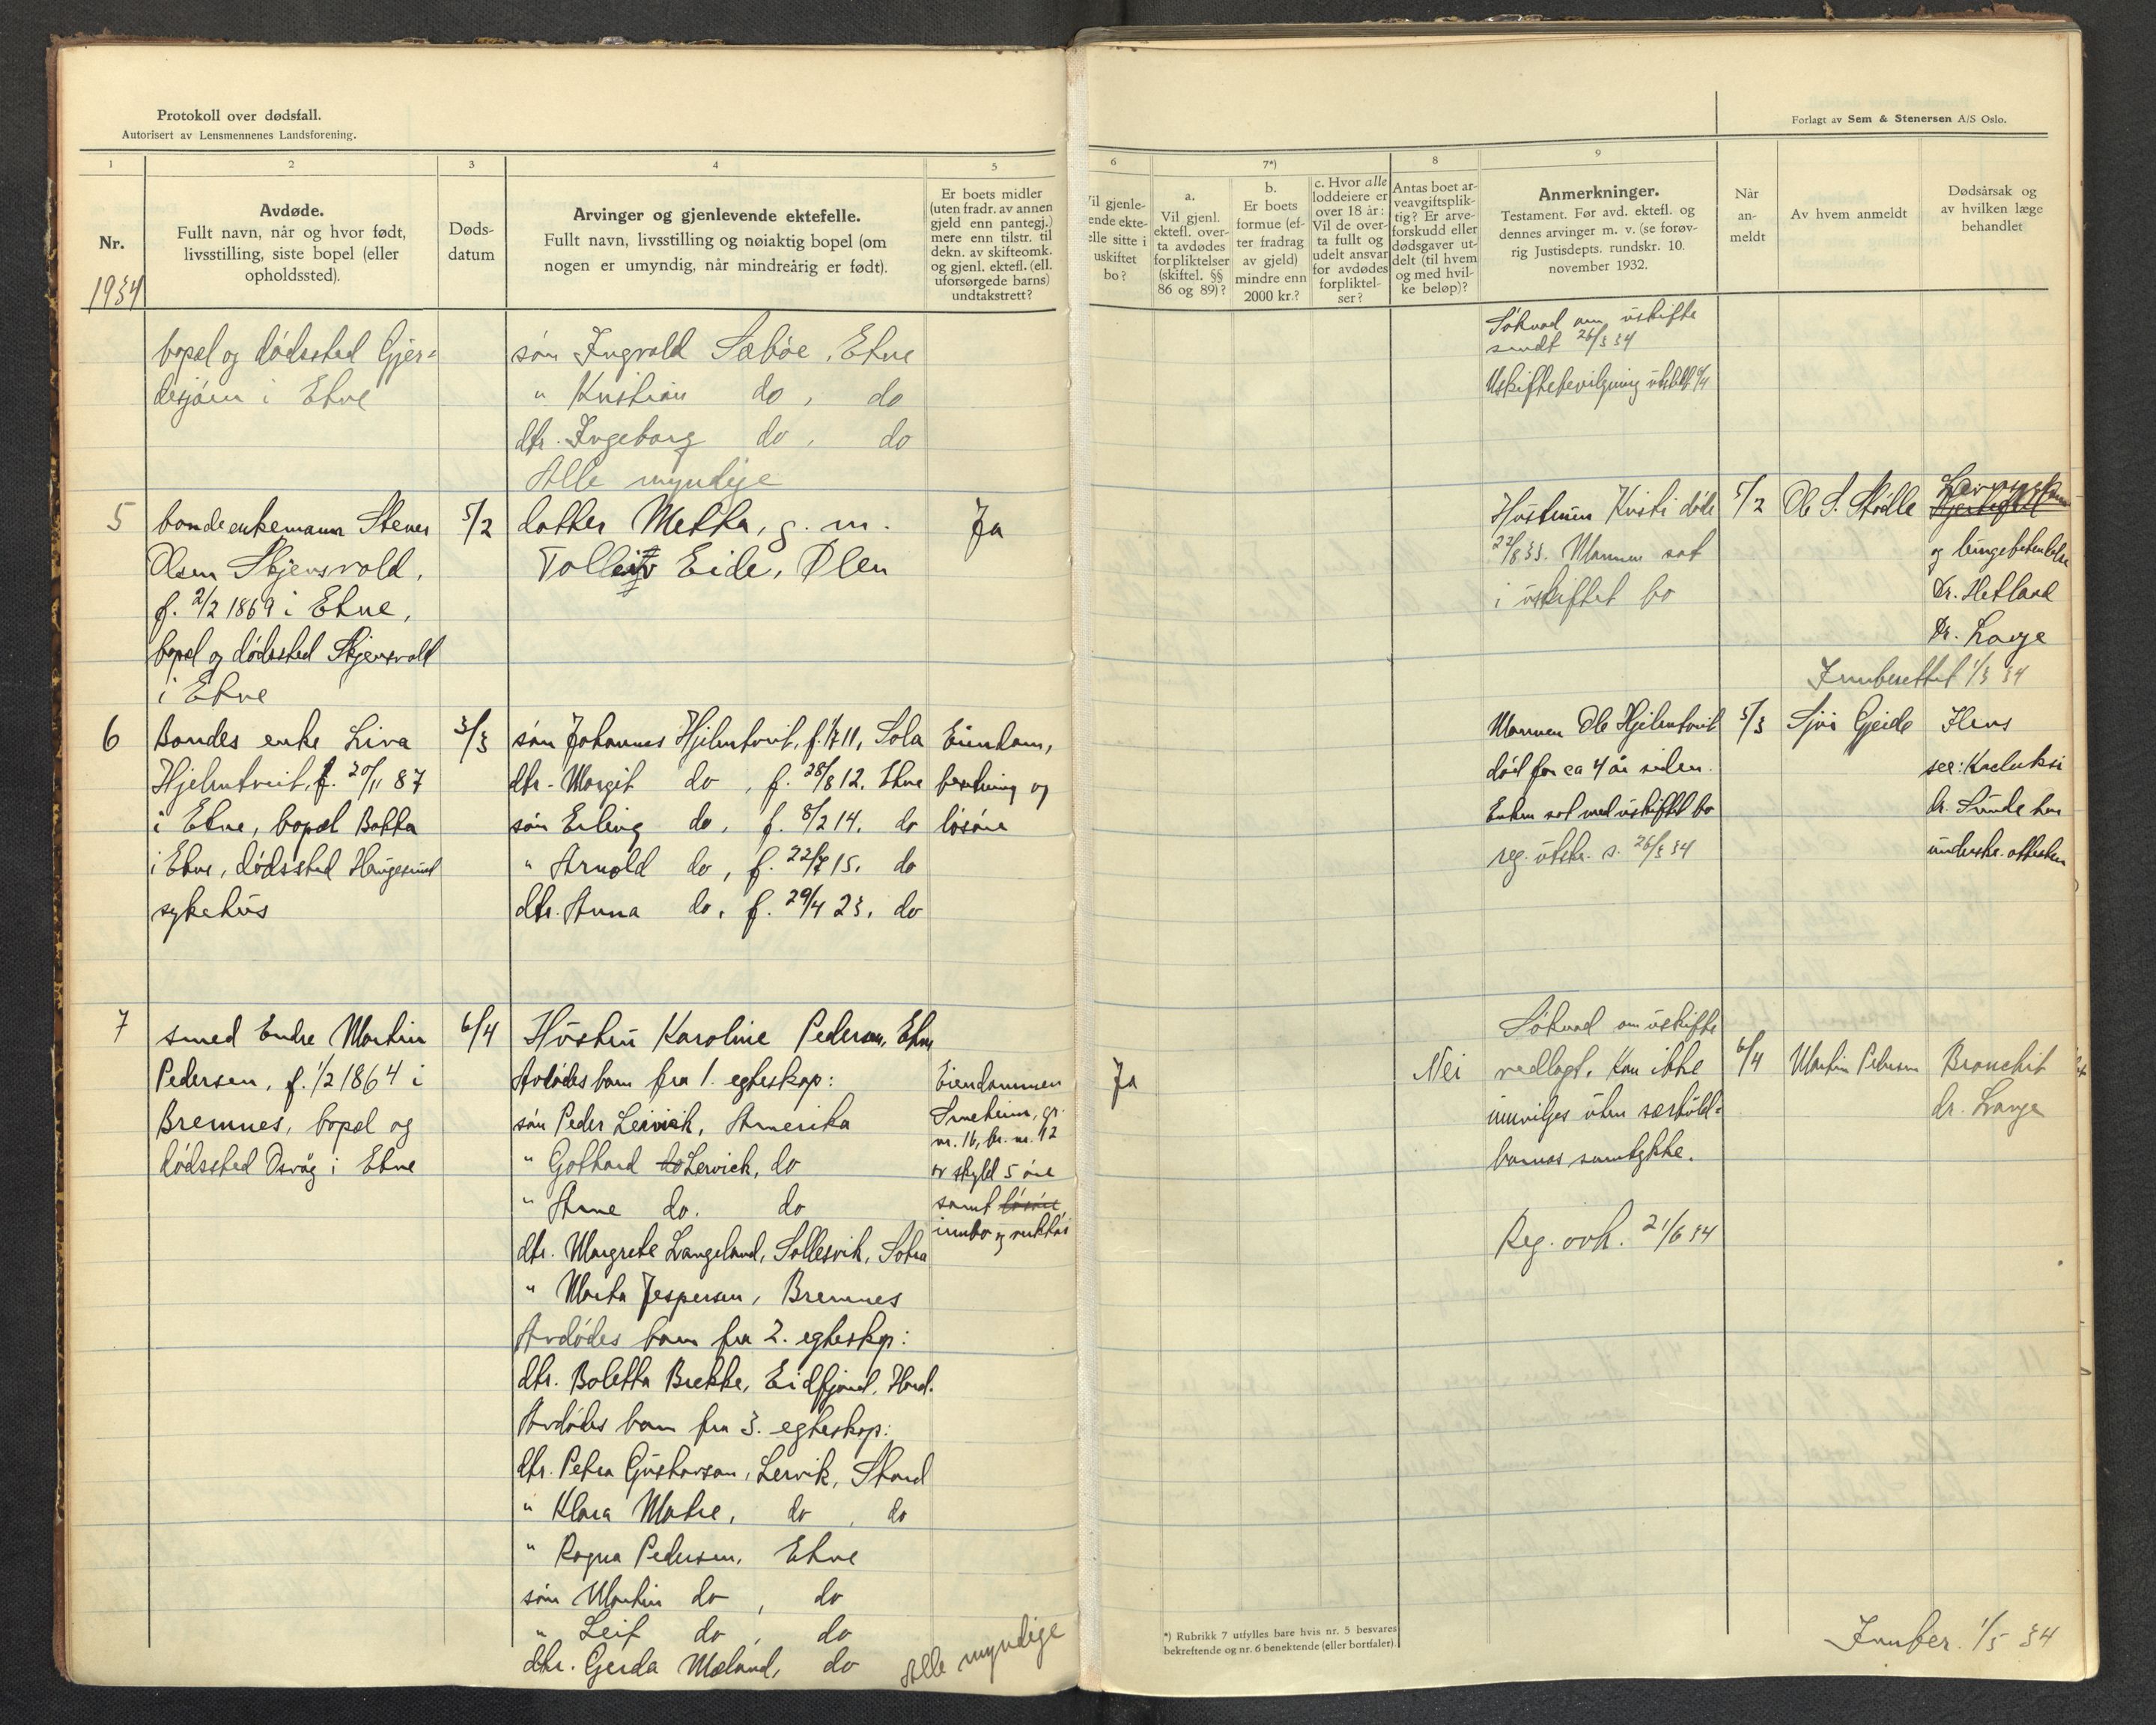 Protokoll over dødsfall.
Autorisert av Lensmennenes Landsforening.
Forlagt av Sem & Stenersen A/S Oslo.
1
2
3
4
5
6
7*)
8
9
Nr.
1934
Avdøde.
Fullt navn, når og hvor født,
livsstilling, siste bopel (eller
opholdssted).
Døds-
datum
Arvinger og gjenlevende ektefelle.
Fullt navn, livsstilling og nøiaktig bopel (om
nogen er umyndig, når mindreårig er født).
Er boets midler
(uten fradr. av annen
gjeld enn pantegj.)
mere enn tilstr. til
dekn. av skifteomk.
og gjenl. ektefl. (ell.
uforsørgede barns)
undtakstrett?
Vil gjenle-
ende ekte-
elle sitte i
uskiftet
bo?
a.
Vil gjenl.
ektefl. over-
ta avdødes
forpliktelser
(skiftel. §§
86 og 89)?
b.
Er boets
formue (ef-
ter fradrag
av gjeld)
mindre enn
2000 kr.?
c. Hvor alle
loddeiere er
over 18 år:
Vil de over-
ta fullt og
udelt ansvar
for avdødes
forpliktel-
ser?
Antas boet ar-
veavgiftsplik-
tig? Er arve-
forskudd eller
dødsgaver ut-
delt (til hvem
og med hvil-
ke beløp)?
Anmerkninger.
Testament. Før avd. ektefl. og
dennes arvinger m. v. (se forøv-
rig Justisdepts. rundskr. 10.
november 1932.
Når
an-
meldt
Av hvem anmeldt
Dødsårsak og
av hvilken læge
behandlet
bopel og dødssted Gjer-
desjøen i Etne
søn Ingvald Sæbøe, Etne
" Kristian do, do
dtr. Ingeborg do, do
Alle myndige
Søknad om uskifte
sendt 26/3 34
Uskiftebevilgning utstedt
5
bondeenkemann Stener
Olsen Skjensvold,
f. 2/2 1869 i Etne,
bopel og dødssted Skjensvold
i Etne
5/2
datter Metha, g. m.
Tolleiv Eide, Ølen
Ja
Hustruen Kristi døde
22/8 33. Mannen sat
i uskiftet bo
5/2
Ole S. Stødle
og lungebetendelse
Dr. Hetland
Dr. Lange
Innberettet 1/3 34
6
Bondes enke Liva
Hjelmtveit, f. 20/11 87
i Etne, bopel Bakka
i Etne, dødssted Haugesund
sykehus
3/3
søn Johannes Hjelmtveit, f. 11, Sola
dtr. Margit do, f. 28/8 12. Etne
søn Erling do, f. 8/2 14. do
" Arnold do, f. 22/7 15. do
dtr. Anna do, f. 29/4 23. do
Eiendom,
besetning og
løsøre
Mannen Ole Hjelmtveit
død for ca 4 år siden.
Enken sat med uskiftet bo
reg. utskr. s. 26/3 34
5/3
Sjur Gjeide
Ilens
sec: Kacheksi
dr. Sunde har
underskr. attesten
7
smed Endre Martin
Pedersen, f. 1/2 1864 i
Bremnes, bopel og
dødssted Osvåg i Etne
6/4
Hustru Karoline Pedersen, Etne
Avdødes barn fra 1. egteskap:
søn Peder Leirvick, Amerika
" Gothard do Lervick, do
" Arne do. do
dtr. Margrete Langeland, Sollesvik, Sotra
" Marta Jespersen, Bremnes
Avdødes barn fra 2. egteskap:
dtr. Boletta Brekke, Eidfjord, Hard.
Avdødes barn fra 3. egteskap:
dtr. Petra Gustavson, Lervik, Stord
" Klara Matre, do, do
" Ragna Pedersen, Etne
søn Martin do, do
" Leif do, do
dtr. Gerda Mæland, do
Alle myndige
Eiendommen
Smeheim, gr.
nr. 16, br. nr. 42
av skyld 5 øre
samt løsøre
innbo og verktøi
Ja
Nei
Søknad om uskifte
vedlagt. Kan ikke
innvilges uten særkuld-
barnas samtykke.
Reg. avh. 21/6 34
6/4
Martin Pedersen
Bronchit
dr. Lange
Innber. 1/5 34
*) Rubrikk 7 utfylles bare hvis nr. 5 besvares
bekreftende og nr. 6 benektende (eller bortfaler).